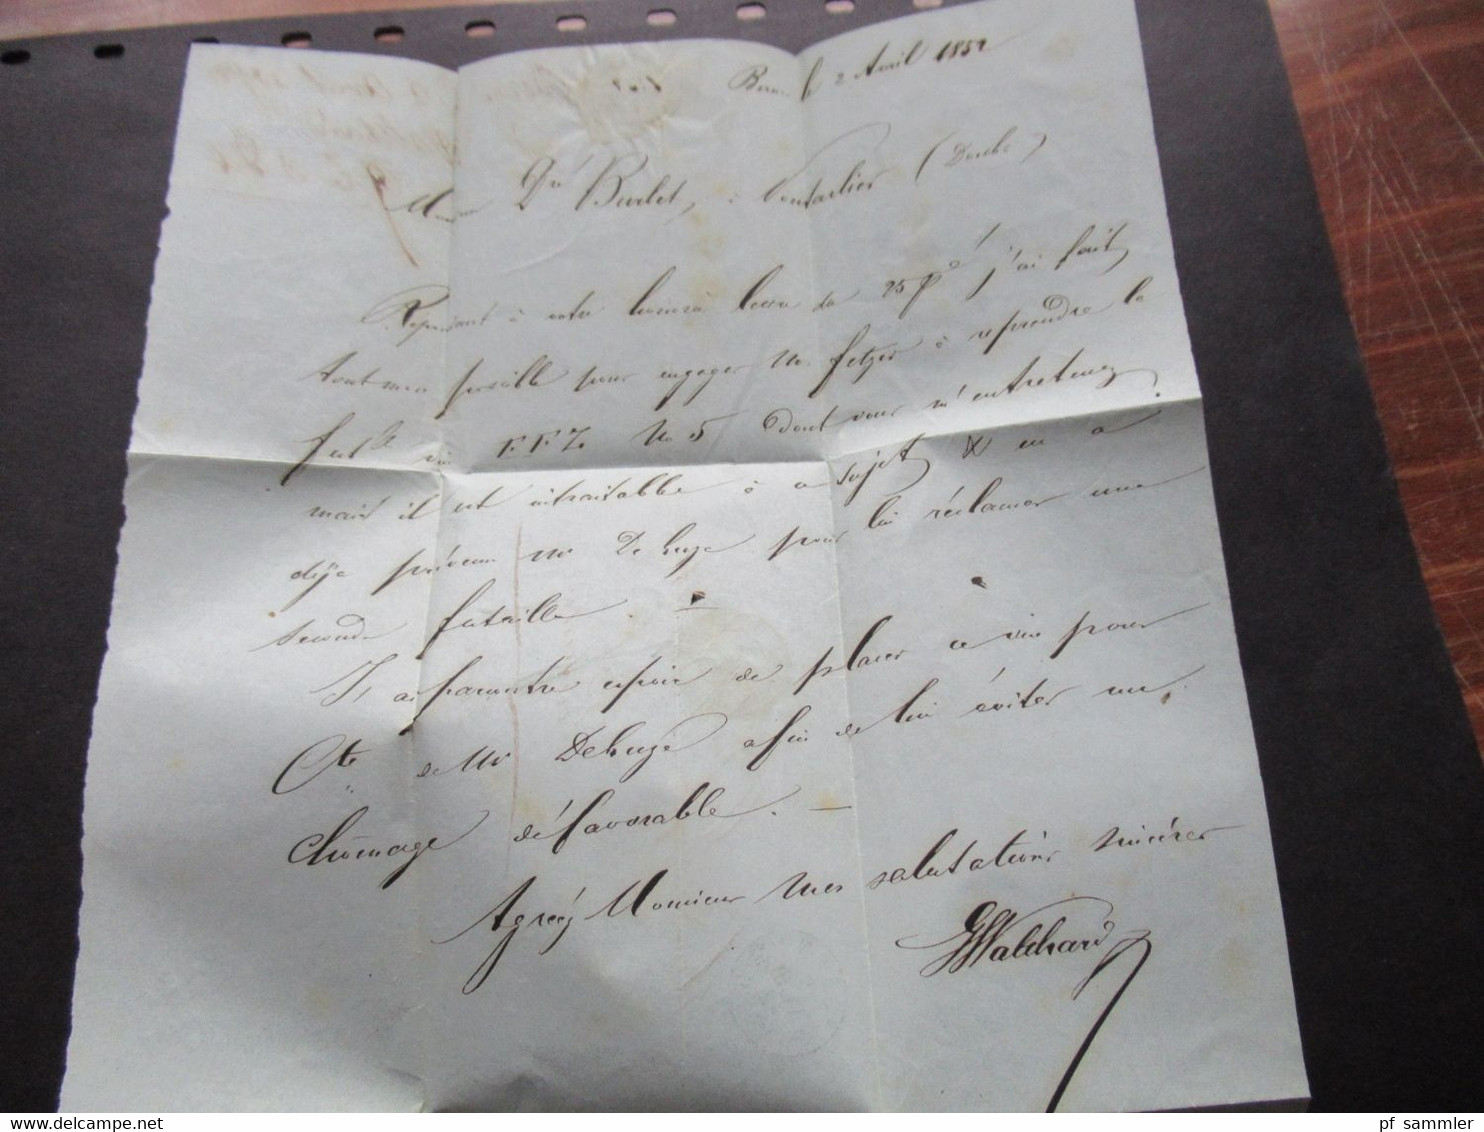 Berne le 2 Avril 1852
Monsieur Burlet, à Pontarlier (Doubs)
Répondant à votre honorée lettre du 25 pé j'ai fait
tout mon possible pour engager Mr. Fetzer à reprendre la
fut.lle vin F.F.Z No 5 dont vous m'entretenez
mais il est intraitable à ce sujet & en a
déja prévenu Mr Debuge pour lui réclamer une
seconde futaille. —
J'ai parcontre espoir de placer ce vin pour
Cte de Mr Debugé afin de lui éviter un
chômage défavorable. —
Agréez Monsieur mes salutations sincères
Walchard
pf sammler
www.delcampe.net